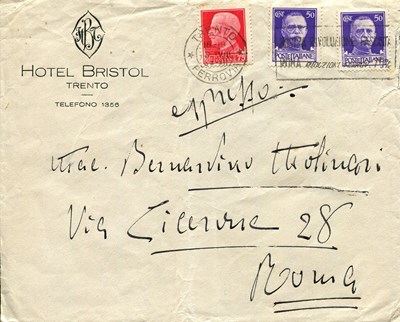 HB
HOTEL BRISTOL
TRENTO
TELEFONO 1358
TRENTO
FERROVIA
50
POSTE ITALIANE
50
POSTE ITALIANE
espresso
Mac. Bernardino Molinari
Via Cicerone 28
Roma